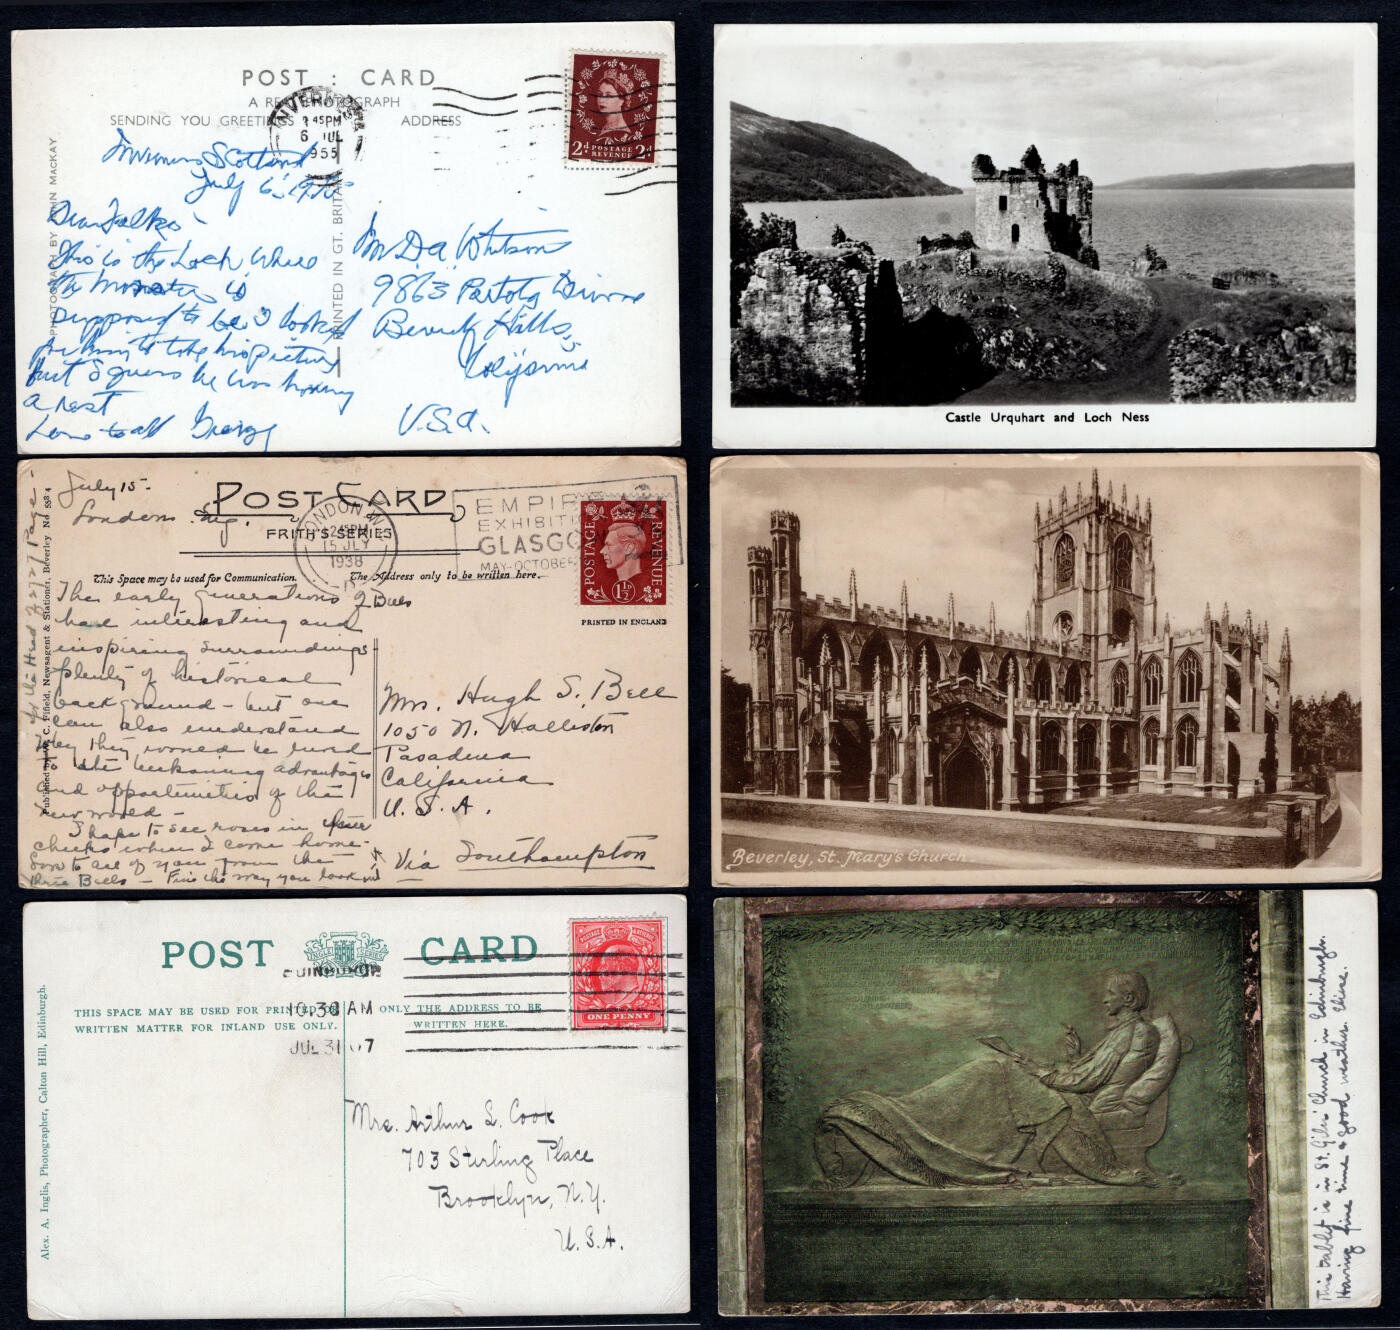 POST : CARD
A REAL PHOTOGRAPH
SENDING YOU GREETINGS ADDRESS
45PM
6 JUL
1955
2d POSTAGE REVENUE 2d
Inverness Scotland
July 6, 1955
Dear Folks -
This is the Loch where
the monster is
supposed to be. I looked
for him to take his picture
but I guess he was having
a rest
Love to all George
PHOTOGRAPH BY JOHN MACKAY
PRINTED IN GT. BRITAIN
9863
Drive
Beverly Hills,
California
U.S.A.
Castle Urquhart and Loch Ness
July 15 -
London. Eng.
POST CARD
FRITH'S SERIES
LONDON W
2 45PM
15 JLY
1938
EMPIRE
EXHIBITION
GLASGOW
MAY-OCTOBER
POSTAGE REVENUE
1½D
PRINTED IN ENGLAND
This Space may be used for Communication. The Address only to be written here.
Published by W. C. Fifield, Newsagent & Stationer, Beverley No 5584
The early generations of Bells
have interesting and
inspiring surroundings
plenty of historical
background - but one
can also understand
why they would be lured
to the beckoning advantages
and opportunities of the
new world -
I hope to see roses in your
cheeks when I come home -
Love to all of you from the
three Bells - Fine the way you look
Mrs. Hugh S. Bell
1050 N. Holliston
Pasadena
California
U.S.A.
Via Southampton
Beverley, St. Mary's Church.
POST CARD
INGLIS SERIES
EDINBURGH
10.30 AM
JUL 31 07
POSTAGE & REVENUE
ONE PENNY
THIS SPACE MAY BE USED FOR PRINTED OR
WRITTEN MATTER FOR INLAND USE ONLY.
ONLY THE ADDRESS TO BE
WRITTEN HERE.
Alex. A. Inglis, Photographer, Calton Hill, Edinburgh.
Mrs. Arthur L. Cook
703 Sterling Place
Brooklyn, N.Y.
U.S.A.
This tablet is in St. Giles' Church in Edinburgh.
Having fine time & good weather. Elise.